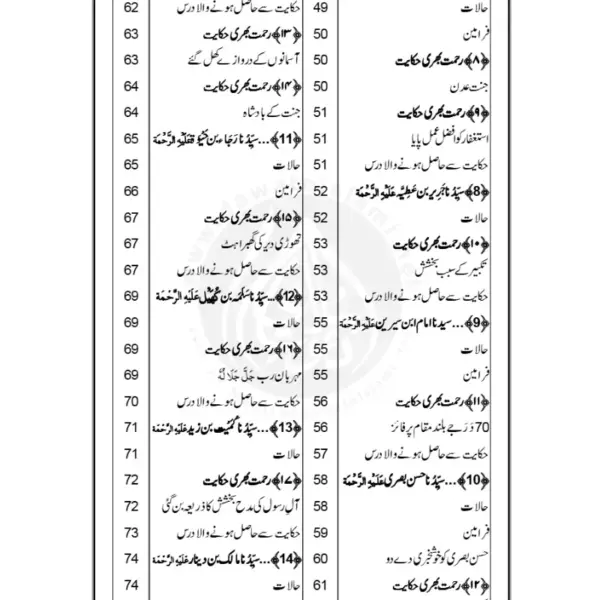 حالات 49
فرامین 50
﴿۸﴾ رحمت بھری حکایت 50
جنت عدن 50
﴿۹﴾ رحمت بھری حکایت 51
استغفار کو افضل عمل پایا 51
حکایت سے حاصل ہونے والا درس 51
﴿8﴾...سیّدُنا جَریر بن عَطِیَّہ عَلَیْہِ الرَّحْمَۃ 52
حالات 52
﴿۱۰﴾ رحمت بھری حکایت 53
تکبیر کے سبب بخشش 53
حکایت سے حاصل ہونے والا درس 53
﴿9﴾...سیدنا امام ابن سیرین عَلَیْہِ الرَّحْمَۃ 55
حالات 55
فرامین 55
﴿۱۱﴾ رحمت بھری حکایت 56
70 دَرَجے بلند مقام پر فائز 56
حکایت سے حاصل ہونے والا درس 57
﴿10﴾...سیّدُنا حسن بصری عَلَیْہِ الرَّحْمَۃ 58
حالات 58
فرامین 59
حسن بصری کو خوشخبری دے دو 60
﴿۱۲﴾ رحمت بھری حکایت 61
حکایت سے حاصل ہونے والا درس 62
﴿۱۳﴾ رحمت بھری حکایت 63
آسمانوں کے دروازے کھل گئے 63
﴿۱۴﴾ رحمت بھری حکایت 64
جنت کے بادشاہ 64
﴿11﴾...سیّدُنا رَجاء بن حَیْوَہ عَلَیْہِ الرَّحْمَۃ 65
حالات 65
فرامین 66
﴿۱۵﴾ رحمت بھری حکایت 67
تھوڑی دیر کی گھبراہٹ 67
حکایت سے حاصل ہونے والا درس 67
﴿12﴾...سیّدُنا سَلَمَہ بن کُھَیْل عَلَیْہِ الرَّحْمَۃ 69
حالات 69
﴿۱۶﴾ رحمت بھری حکایت 69
مہربان رب جَلَّ جَلَالُہٗ 69
حکایت سے حاصل ہونے والا درس 70
﴿13﴾...سیّدُنا کُمَیْت بن زید عَلَیْہِ الرَّحْمَۃ 71
حالات 71
﴿۱۷﴾ رحمت بھری حکایت 72
آلِ رسول کی مدح بخشش کا ذریعہ بن گئی 72
حکایت سے حاصل ہونے والا درس 73
﴿14﴾...سیّدُنا مالک بن دینار عَلَیْہِ الرَّحْمَۃ 74
حالات 74